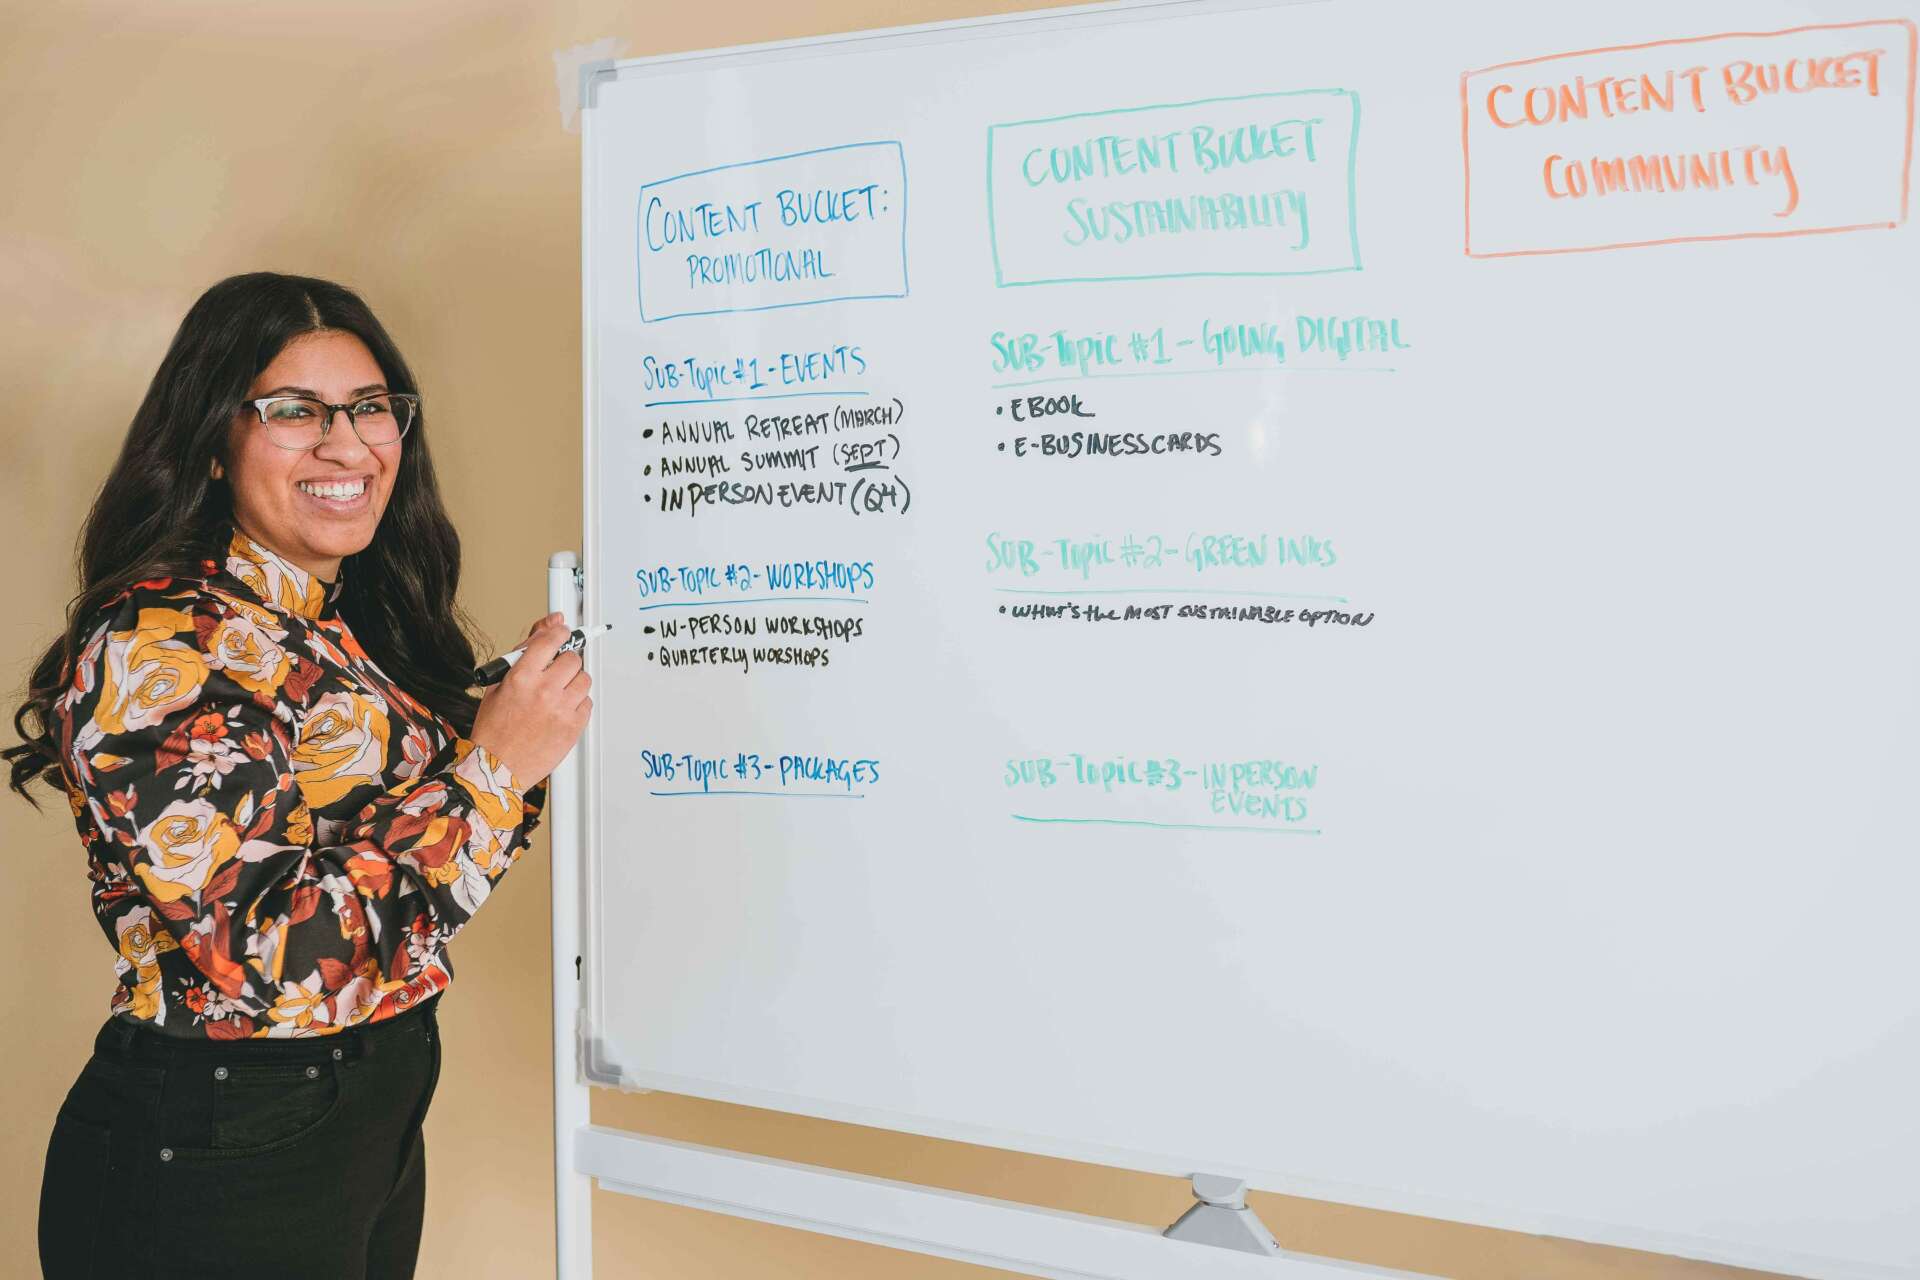 CONTENT BUCKET:
PROMOTIONAL
SUB-TOPIC #1 - EVENTS
• ANNUAL RETREAT (MARCH)
• ANNUAL SUMMIT (SEPT)
• IN PERSON EVENT (Q4)
SUB-TOPIC #2 - WORKSHOPS
• IN-PERSON WORKSHOPS
• QUARTERLY WORSHOPS
SUB-TOPIC #3 - PACKAGES
CONTENT BUCKET
SUSTAINABILITY
SUB-TOPIC #1 - GOING DIGITAL
• EBOOK
• E-BUSINESS CARDS
SUB-TOPIC #2 - GREEN INKS
• WHAT'S the MOST SUSTAINABLE OPTION
SUB-TOPIC #3 - IN PERSON
EVENTS
CONTENT BUCKET
COMMUNITY